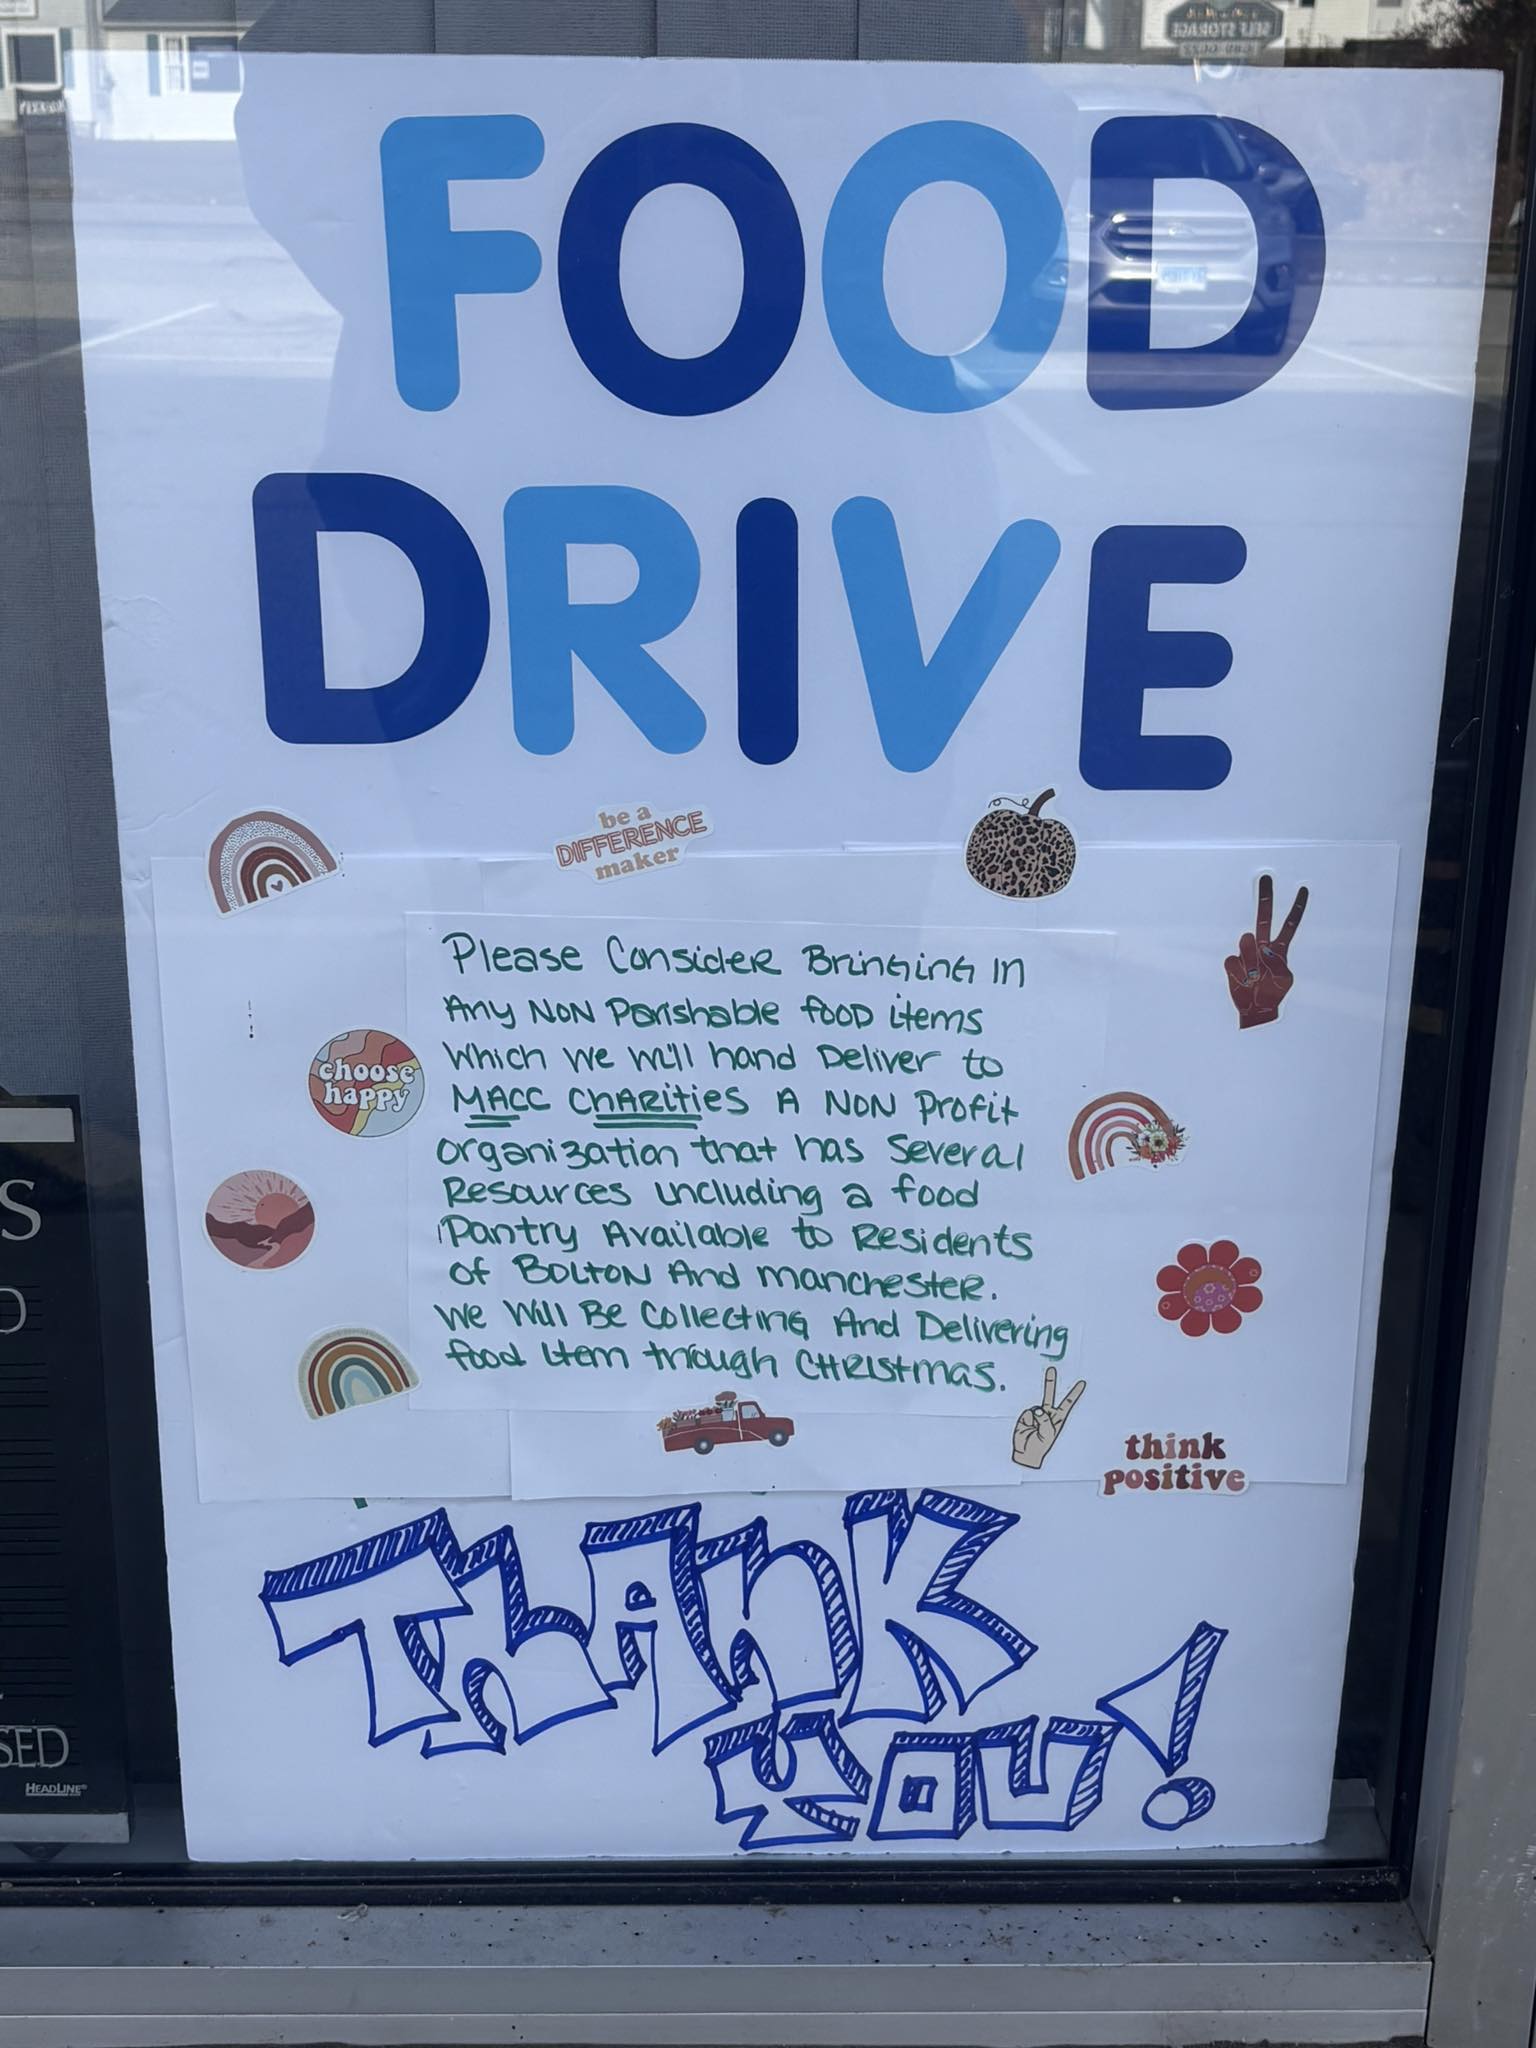 FOOD
DRIVE
be a
DIFFERENCE
maker
Please Consider Bringing in
Any Non Parishable food items
Which we will hand Deliver to
MACC Charities A Non Profit
organization that has Several
Resources including a food
Pantry Available to Residents
of Bolton And Manchester.
We Will Be Collecting And Delivering
food item through CHRistmas.
choose
happy
think
positive
THANK
YOU!
SED
HEADLINE®
SELF STORAGE